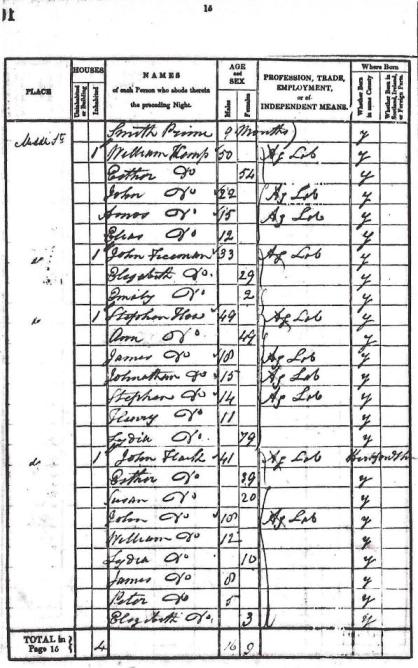 15
PLACE
HOUSES
Uninhabited or Building
Inhabited
NAMES
of each Person who abode therein the preceding Night.
AGE and SEX
Males
Females
PROFESSION, TRADE, EMPLOYMENT, or of INDEPENDENT MEANS.
Where Born
Whether Born in same County
Whether Born in Scotland, Ireland, or Foreign Parts.
Smith Prime 9 Months) y
1 William Kemp 50 Ag Lab y
Esther Do 54 y
John Do 22 Ag Lab y
Amos Do 15 Ag Lab y
Elias Do 12 y
do 1 John Freeman 33 Ag Lab y
Elizabeth Do. 29 y
Do 2 y
do 1 Stephen 49 Ag Lab y
Ann Do 49 y
James Do 18 Ag Lab y
Johnathan Do 15 Ag Lab y
Stephen Do 14 Ag Lab y
Henry Do 11 y
Lydia Do. 79 y
do 1 John 41 Ag Lab
Esther Do 39 y
Susan Do 20 y
John Do 18 Ag Lab y
William Do 12 y
Lydia Do 10 y
James Do 8 y
Peter Do 5 y
Elizabeth Do. 3 y
TOTAL in Page 15 } 4 16 9